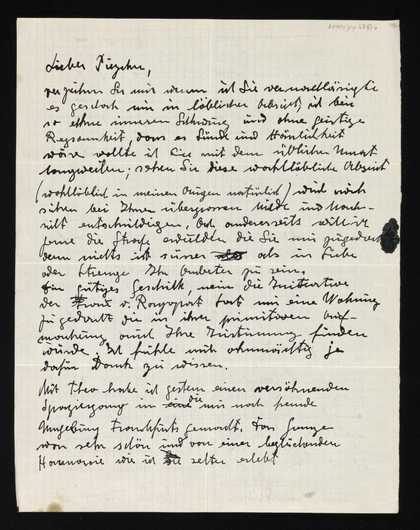 Lieber Piozchen,
verzeihen Sie mir wenn ich Sie vernachlässigte
es geschah nur in löblicher Absicht, ich bin
so ohne inneren Schwung und ohne geistige
Regsamkeit, dass es Sünde und Hässlichkeit
wäre wollte ich Sie mit dem üblichen
langweilen; sehen Sie diese wohllöbliche Absicht
(wohllöblich in meinen Augen natürlich) wird mich
sicher bei Ihrer übergrossen Milde und Nach-
sicht entschuldigen, doch andererseits will ich
gerne die Strafe erdulden die Sie mir zugedacht
denn nichts ist süsser als in Liebe
oder Strenge Ihr Anbeter zu sein.
Ein gütiges Geschick, nein die Initiative
der Frau v. Rapoport hat mir eine Wohnung
zugedacht die in ihrer primitiven Auf-
machung auch Ihre Zustimmung finden
würde. Ich fühle mich ohnmächtig je
dafür Dank zu wissen.
Mit Theo habe ich gestern einen versöhnenden
Spaziergang in die mir noch fremde
Umgebung Frankfurts gemacht. Das Ganze
war sehr schön und von einer beglückenden
Harmonie wie ich sie selten erlebt